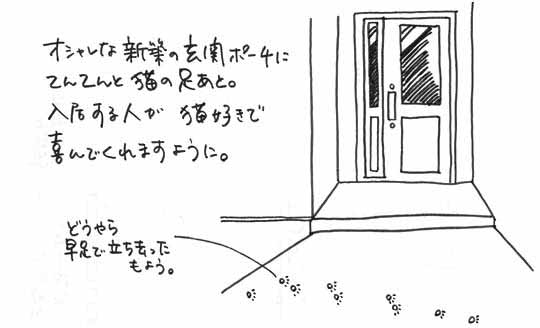 オシャレな新築の玄関ポーチに
てんてんと猫の足あと。
入居する人が猫好きで
喜んでくれますように。
どうやら
早足で立ち去った
もよう。